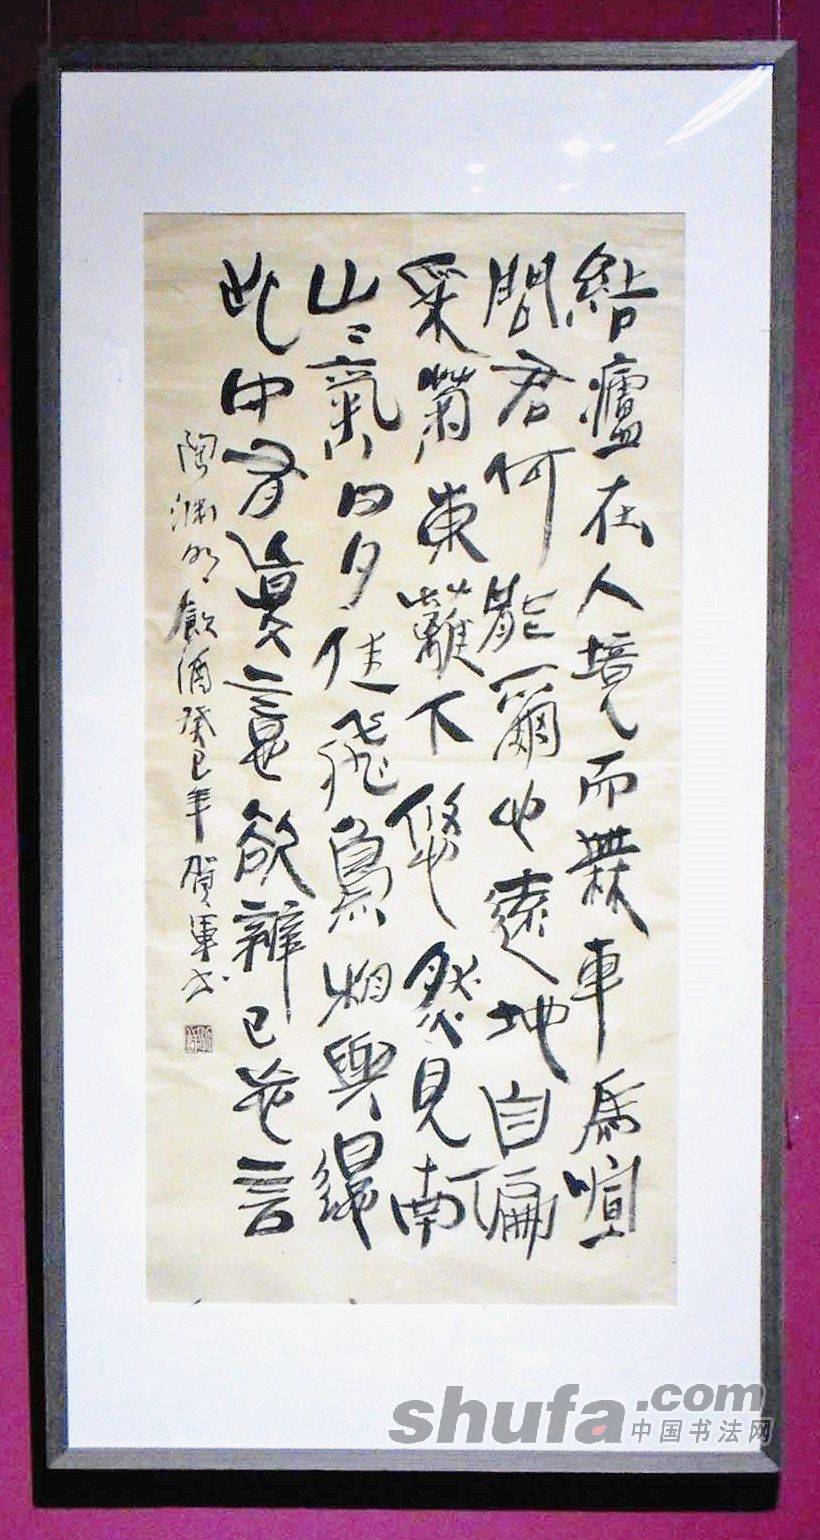 結廬在人境而無車馬喧
問君何能爾心遠地自偏
采菊東籬下悠然見南
山〻氣日夕佳飛鳥相與還
此中有真意欲辨已忘言
陶渊明飲酒癸巳年賀軍书
shufa.com
中国书法网